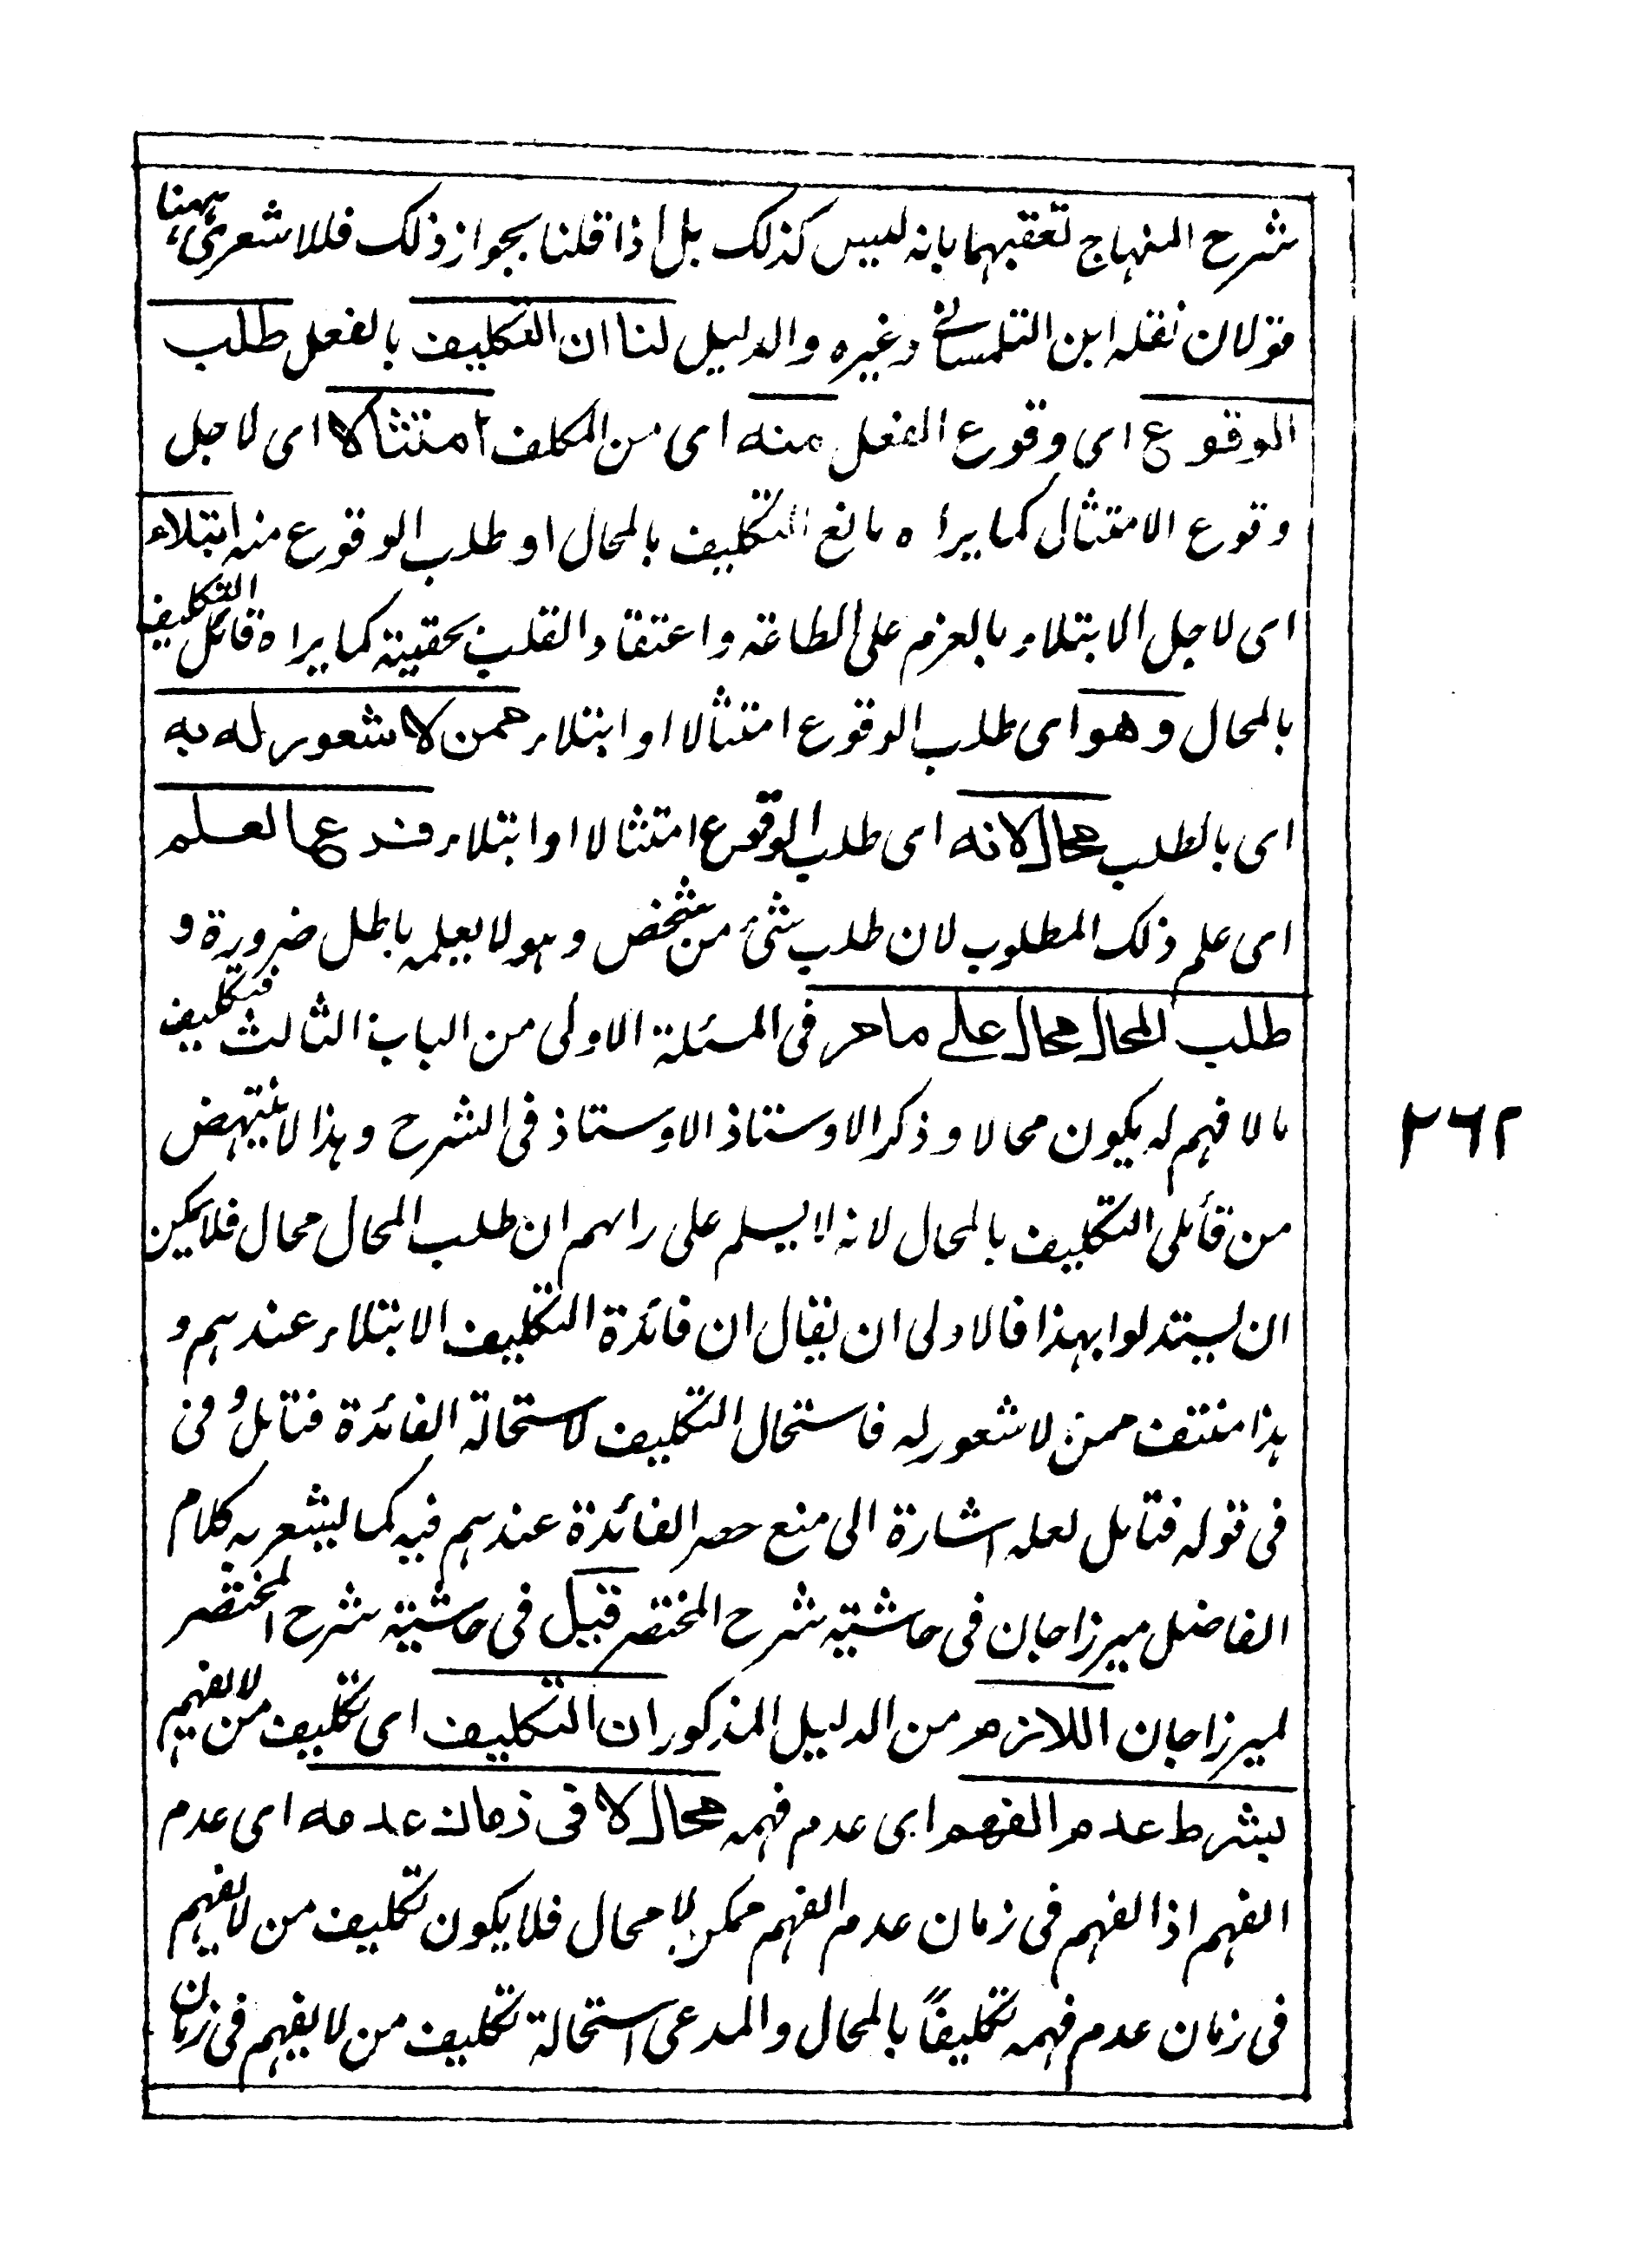 شرح المنهاج تعقبهما بانه ليس كذلك بل اذا قلنا بجواز ذلك فللاشعرى ههنا
قولان نقله ابن التلمسانى وغيره والدليل لنا ان التكليف بالفعل طلب
الوقوع اى وقوع الفعل منه اى من المكلف امتثالا اى لاجل
وقوع الامتثال كما يراه مانع التكليف بالمحال او طلب الوقوع منه ابتلاء
اى لاجل الابتلاء بالعزم على الطاعة واعتقاد القلب بحقيته كما يراه قائل التكليف
بالمحال وهو اى طلب الوقوع امتثالا او ابتلاء ممن لا شعور له به
اى بالطلب محال لانه اى طلب الوقوع امتثالا او ابتلاء فرع العلم
اى علم ذلك المطلوب لان طلب شئ من شخص وهو لا يعلمه باطل ضرورة و
طلب المحال محال على ما مر فى المسئلة الاولى من الباب الثالث فتكليف
ما لا فهم له يكون محالا وذكر الاوستاذ الاوستاذ فى الشرح وهذا لا ينتهض
من قائلى التكليف بالمحال لانه لا يسلم على رايهم ان طلب المحال محال فلا يمكن
ان يستدلوا بهذا فالاولى ان يقال ان فائدة التكليف الابتلاء عندهم و
هذا منتف ممن لا شعور له فاستحال التكليف لاستحالة الفائدة فتامل وفى
فى قوله فتامل لعله اشارة الى منع حصر الفائدة عندهم فيه كما يشعر به كلام
الفاضل ميرزاجان فى حاشية شرح المختصر قيل فى حاشية شرح المختصر
لميرزاجان اللازم من الدليل المذكور ان التكليف اى تكليف من لا يفهم
بشرط عدم الفهم اى عدم فهمه محال لا فى زمان عدمه اى عدم
الفهم اذ الفهم فى زمان عدم الفهم ممكن لا محال فلا يكون تكليف من لا يفهم
فى زمان عدم فهمه تكليفاً بالمحال والمدعى استحالة تكليف من لا يفهم فى زمان
٢٦٢